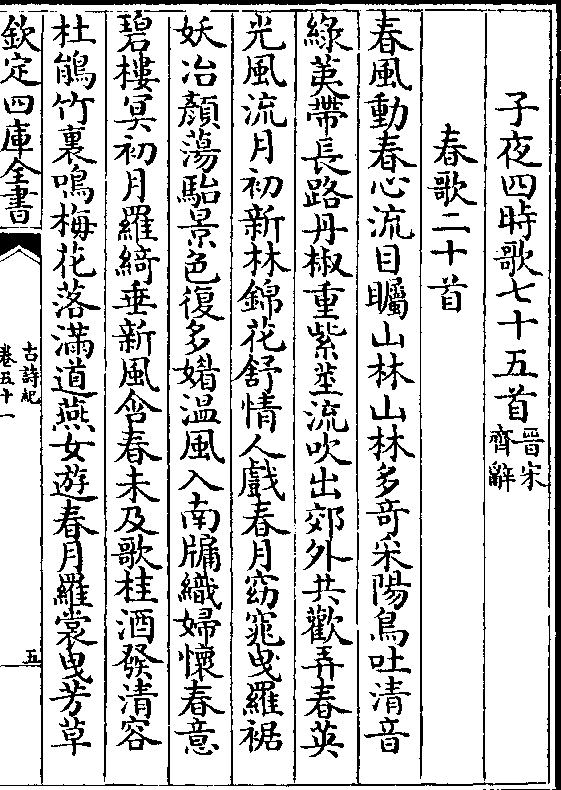 子夜四時歌七十五首晉宋齊辭
春歌二十首
春風動春心流目矚山林山林多奇采陽鳥吐清音
綠荑帶長路丹椒重紫莖流吹出郊外共歡弄春英
光風流月初新林錦花舒情人戲春月窈窕曳羅裾
妖冶顏蕩駘景色復多媘溫風入南牖織婦懷春意
碧樓冥初月羅綺垂新風含春未及歌桂酒發清容
杜鵑竹裏鳴梅花落滿道燕女遊春月羅裳曳芳草
欽定四庫全書
古詩紀
卷五十一
五